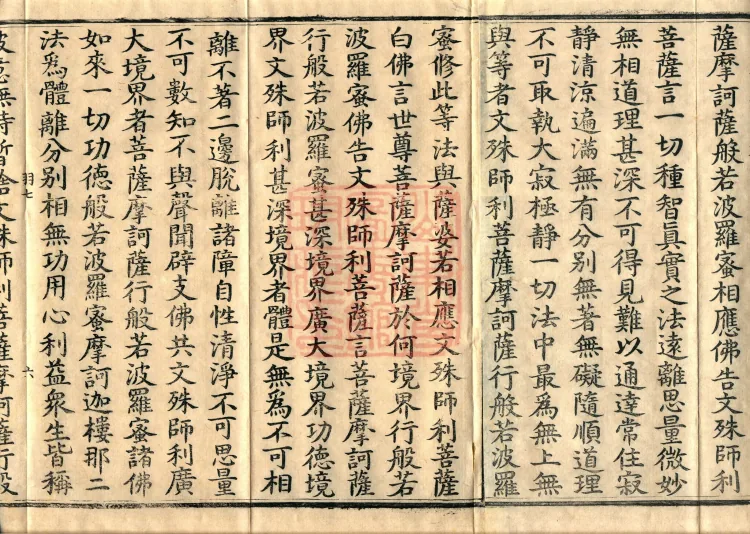 薩摩訶薩般若波羅蜜相應佛告文殊師利
菩薩言一切種智真實之法遠離思量微妙
無相道理甚深不可得見難以通達常住寂
靜清涼遍滿無有分別無著無礙隨順道理
不可取執大寂極靜一切法中最為無上無
與等者文殊師利菩薩摩訶薩行般若波羅
蜜修此等法與薩婆若相應文殊師利菩薩
白佛言世尊菩薩摩訶薩於何境界行般若
波羅蜜佛告文殊師利菩薩言菩薩摩訶薩
行般若波羅蜜甚深境界廣大境界功德境
界文殊師利甚深境界者體是無為不可相
離不著二邊脫離諸障自性清淨不可思量
不可數知不與聲聞辟支佛共文殊師利廣
大境界者菩薩摩訶薩行般若波羅蜜諸佛
如來一切功德般若波羅蜜摩訶迦樓那二
法為體離分別相無功用心利益眾生皆稱
羽七
六
彼意無時暫捨文殊師利菩薩摩訶薩行般